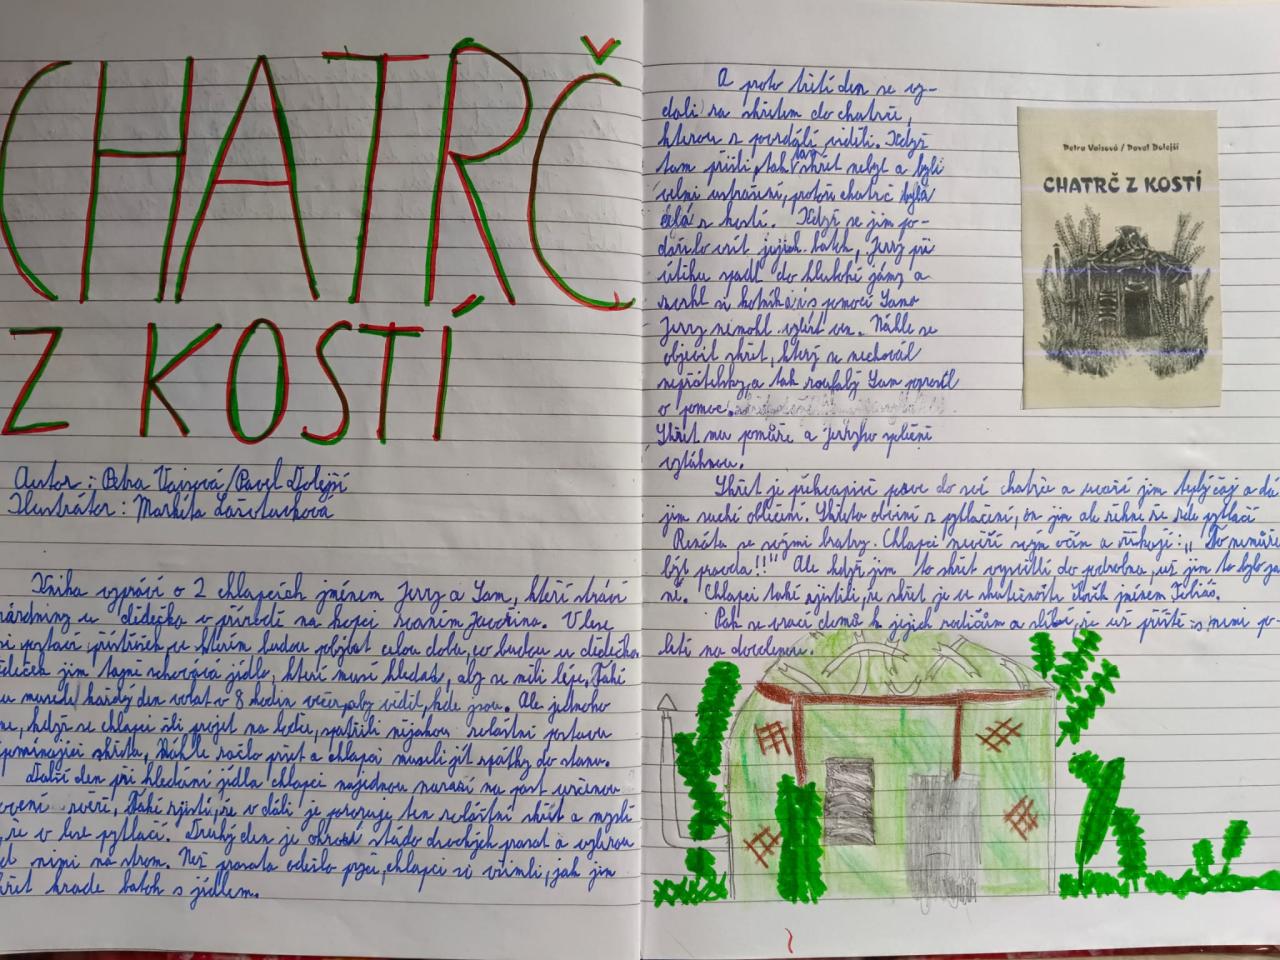 CHATRČ
Z KOSTÍ
Autor: Petra Vaisová/Pavel Dolejší
Ilustrátor: Markéta
Kniha vypráví o 2 chlapcích jménem Jerry a Sam, kteří tráví
prázdniny u dědečka v přírodě na kopci zvaném Javořina. V lese
si postaví přístřešek, ve kterém budou pobývat celou dobu, co budou u dědečka.
Dědeček jim tajně schovává jídlo, které musí hledat, aby se měli lépe. Také
mu musejí každý den volat v 8 hodin večer, aby věděl, kde jsou. Ale jednoho
dne, když se chlapci šli projet na loďce, spatřili nějakou zvláštní postavu
připomínající skřeta. Náhle začalo pršet a chlapci museli jít zpátky do stanu.
Další den při hledání jídla chlapci najednou narazí na past určenou
k lovení zvěře. Také zjistí, že v dáli je pozoruje ten zvláštní skřet a myslí
si, že v lese pytlačí. Druhý den je ohrozí stádo divokých prasat a vylezou
před nimi na strom. Než prasata odešla pryč, chlapci si všimli, jak jim
skřet krade batoh s jídlem.
A proto třetí den se vy-
dali za skřetem do chatrče,
kterou z povzdálí viděli. Když
tam přišli, tak tam skřet nebyl a byli
velmi vystrašení, protože chatrč byla
celá z kostí. Když se jim po-
dařilo vzít jejich batoh, Jerry při
útěku spadl do hluboké jámy a
zvrkl si kotník a i s pomocí Sama
Jerry nemohl vylézt ven. Náhle se
objevil skřet, který se nechoval
nepřátelsky, a tak zoufalý Sam poprosil
o pomoc.
Skřet mu pomůže a Jerryho společně
vytáhnou.
Skřet je překvapivě pozve do své chatrče a uvaří jim teplý čaj a dá
jim suché oblečení. Skřeta obviní z pytlačení, on jim ale řekne že zde pytlačí
Renáta se svými bratry. Chlapci nevěří svým očím a říkají: „To nemůže
být pravda!!!" Ale když jim to skřet vysvětlí do podrobna, už jim to bylo jas-
né. Chlapci také zjistili, že skřet je ve skutečnosti člověk jménem Tobiáš.
Pak se vrací domů k jejich rodičům a slíbí, že už příště s nimi po-
letí na dovolenou.
Petra Vaisová / Pavel Dolejší
CHATRČ Z KOSTÍ